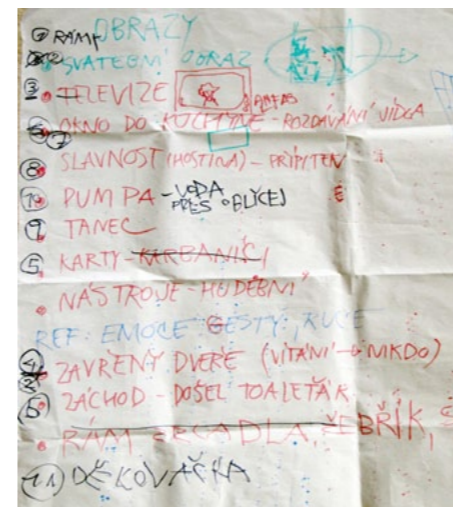 OBRAZY
① RÁMY
2 SVATEBNÍ OBRAZ
③ TELEVIZE
⑦ OKNO DO KUCHYNĚ - ROZDÁVÁNÍ JÍDLA
⑧ SLAVNOST (HOSTINA) - PŘÍPITEK
⑩ PUMPA - VODA
PŘES OBLIČEJ
⑨ TANEC
⑤ KARTY - KARBANÍCI
NÁSTROJE - HUDEBNÍ
REF: EMOCE GESTY, RUCE
④ ZAVŘENÝ DVEŘE (VÍTÁNÍ → NIKDO)
⑥ ZÁCHOD - DOŠEL TOALEŤÁK
RÁM ŽEBŘÍK,
⑪ DĚKOVAČKA